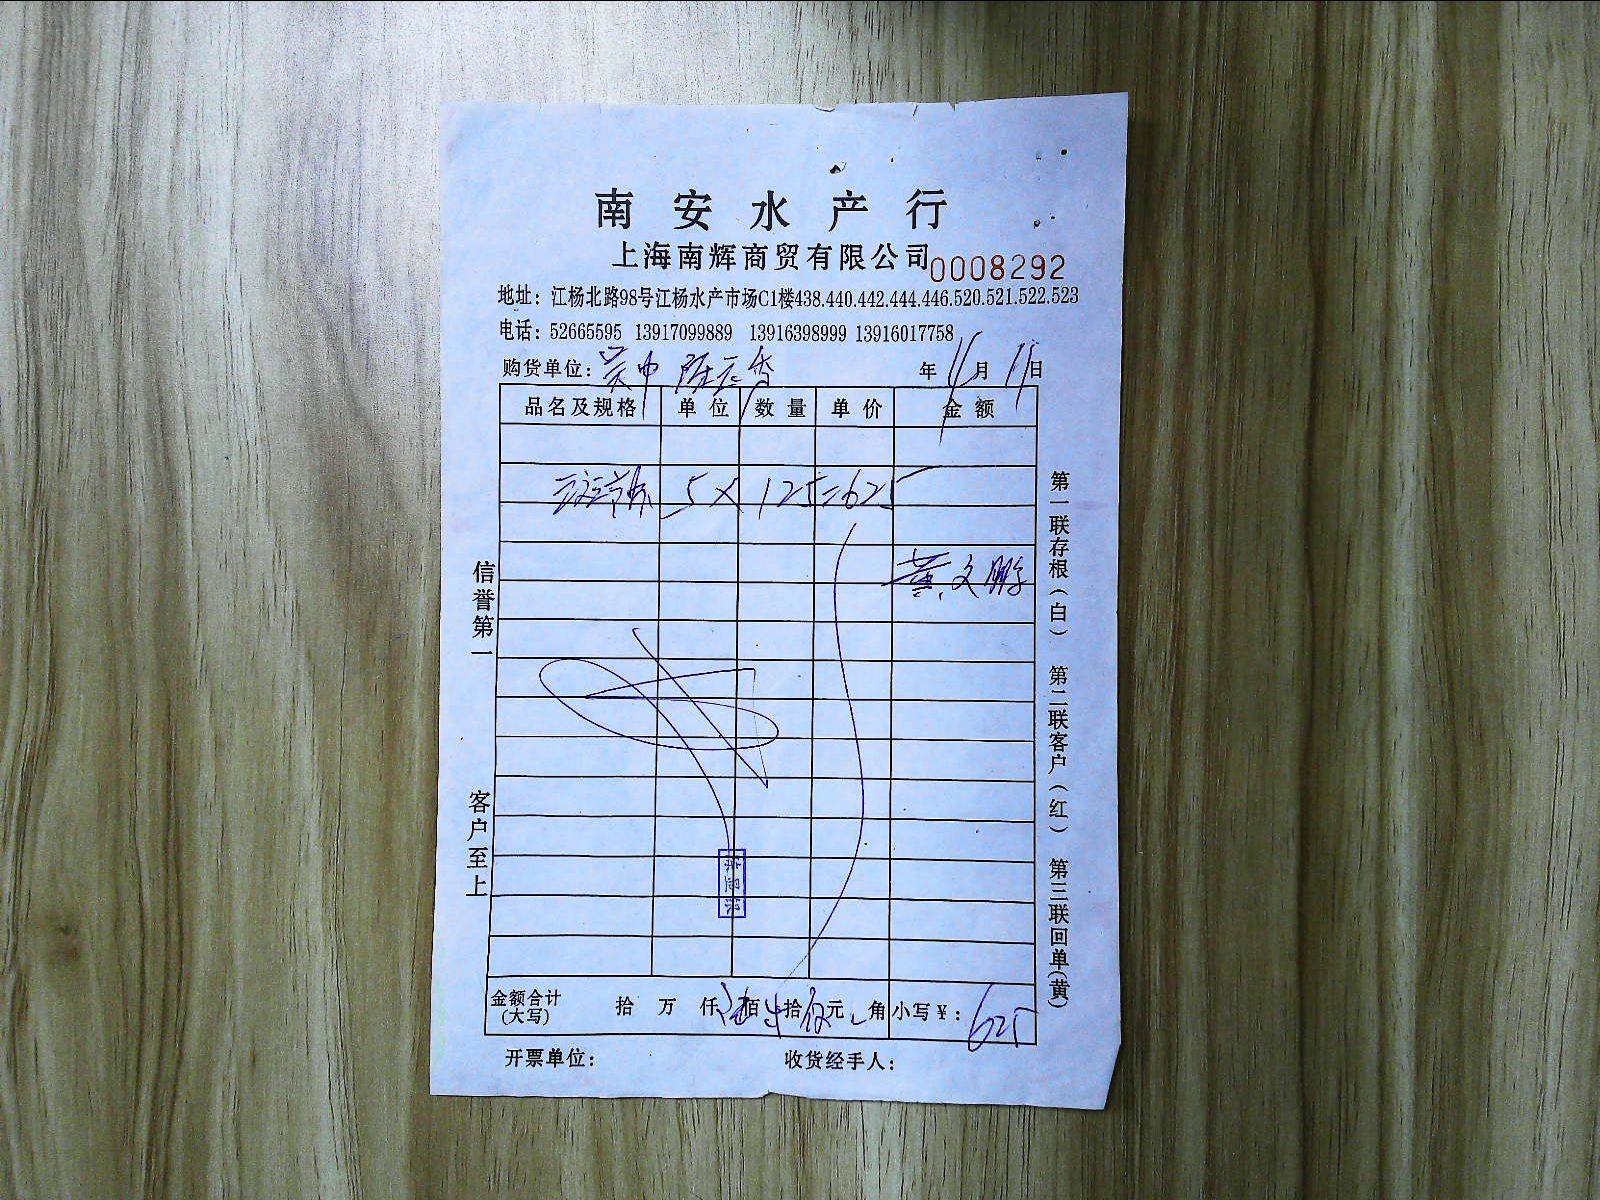 南安水产行
上海南辉商贸有限公司 0008292
地址：江杨北路98号江杨水产市场C1楼438.440.442.444.446.520.521.522.523
电话：52665595 13917099889 13916398999 13916017758
购货单位： 年 11 月 11 日
品名及规格 单位 数量 单价 金额
5 × 125=625
黄文鹏
信誉第一
客户至上
第一联存根（白） 第二联客户（红） 第三联回单（黄）
金额合计（大写） 拾 万 仟 佰 拾 元 角 小写￥：625
开票单位： 收货经手人：